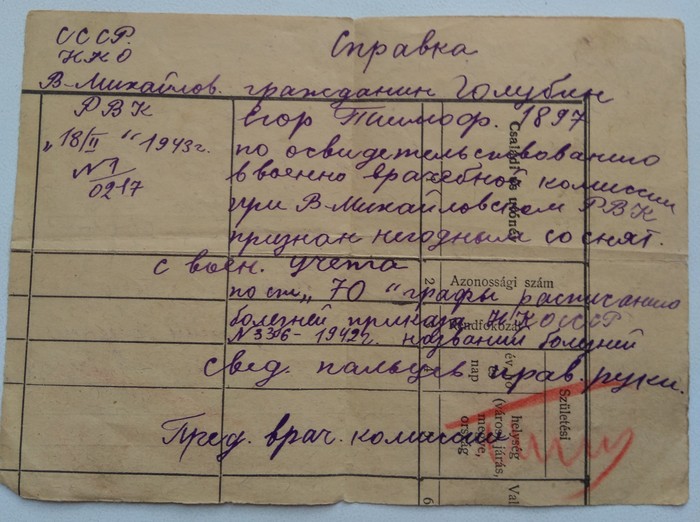 СССР.
НКО
Справка
В-Михайлов. гражданин Голубин
РВК
Егор Тимоф. 1897
„18/II“ 1943г.
по освидетельствованию
N 1
0217
в военно врачебной комиссии
при В-Михайловском РВК
признан негодным со снят.
с воен. учета
по ст „70“ графы расписанию
болезней приказа НКО СССР
N 336-1942г. названий болезней
свед. пальцев прав. руки.
Пред. врач. комиссии
Családi és utónév
2
Azonossági szám
Rendfokozat
Születési
év, hó
nap
helység
(város, járás,
megye,
ország
Val
6